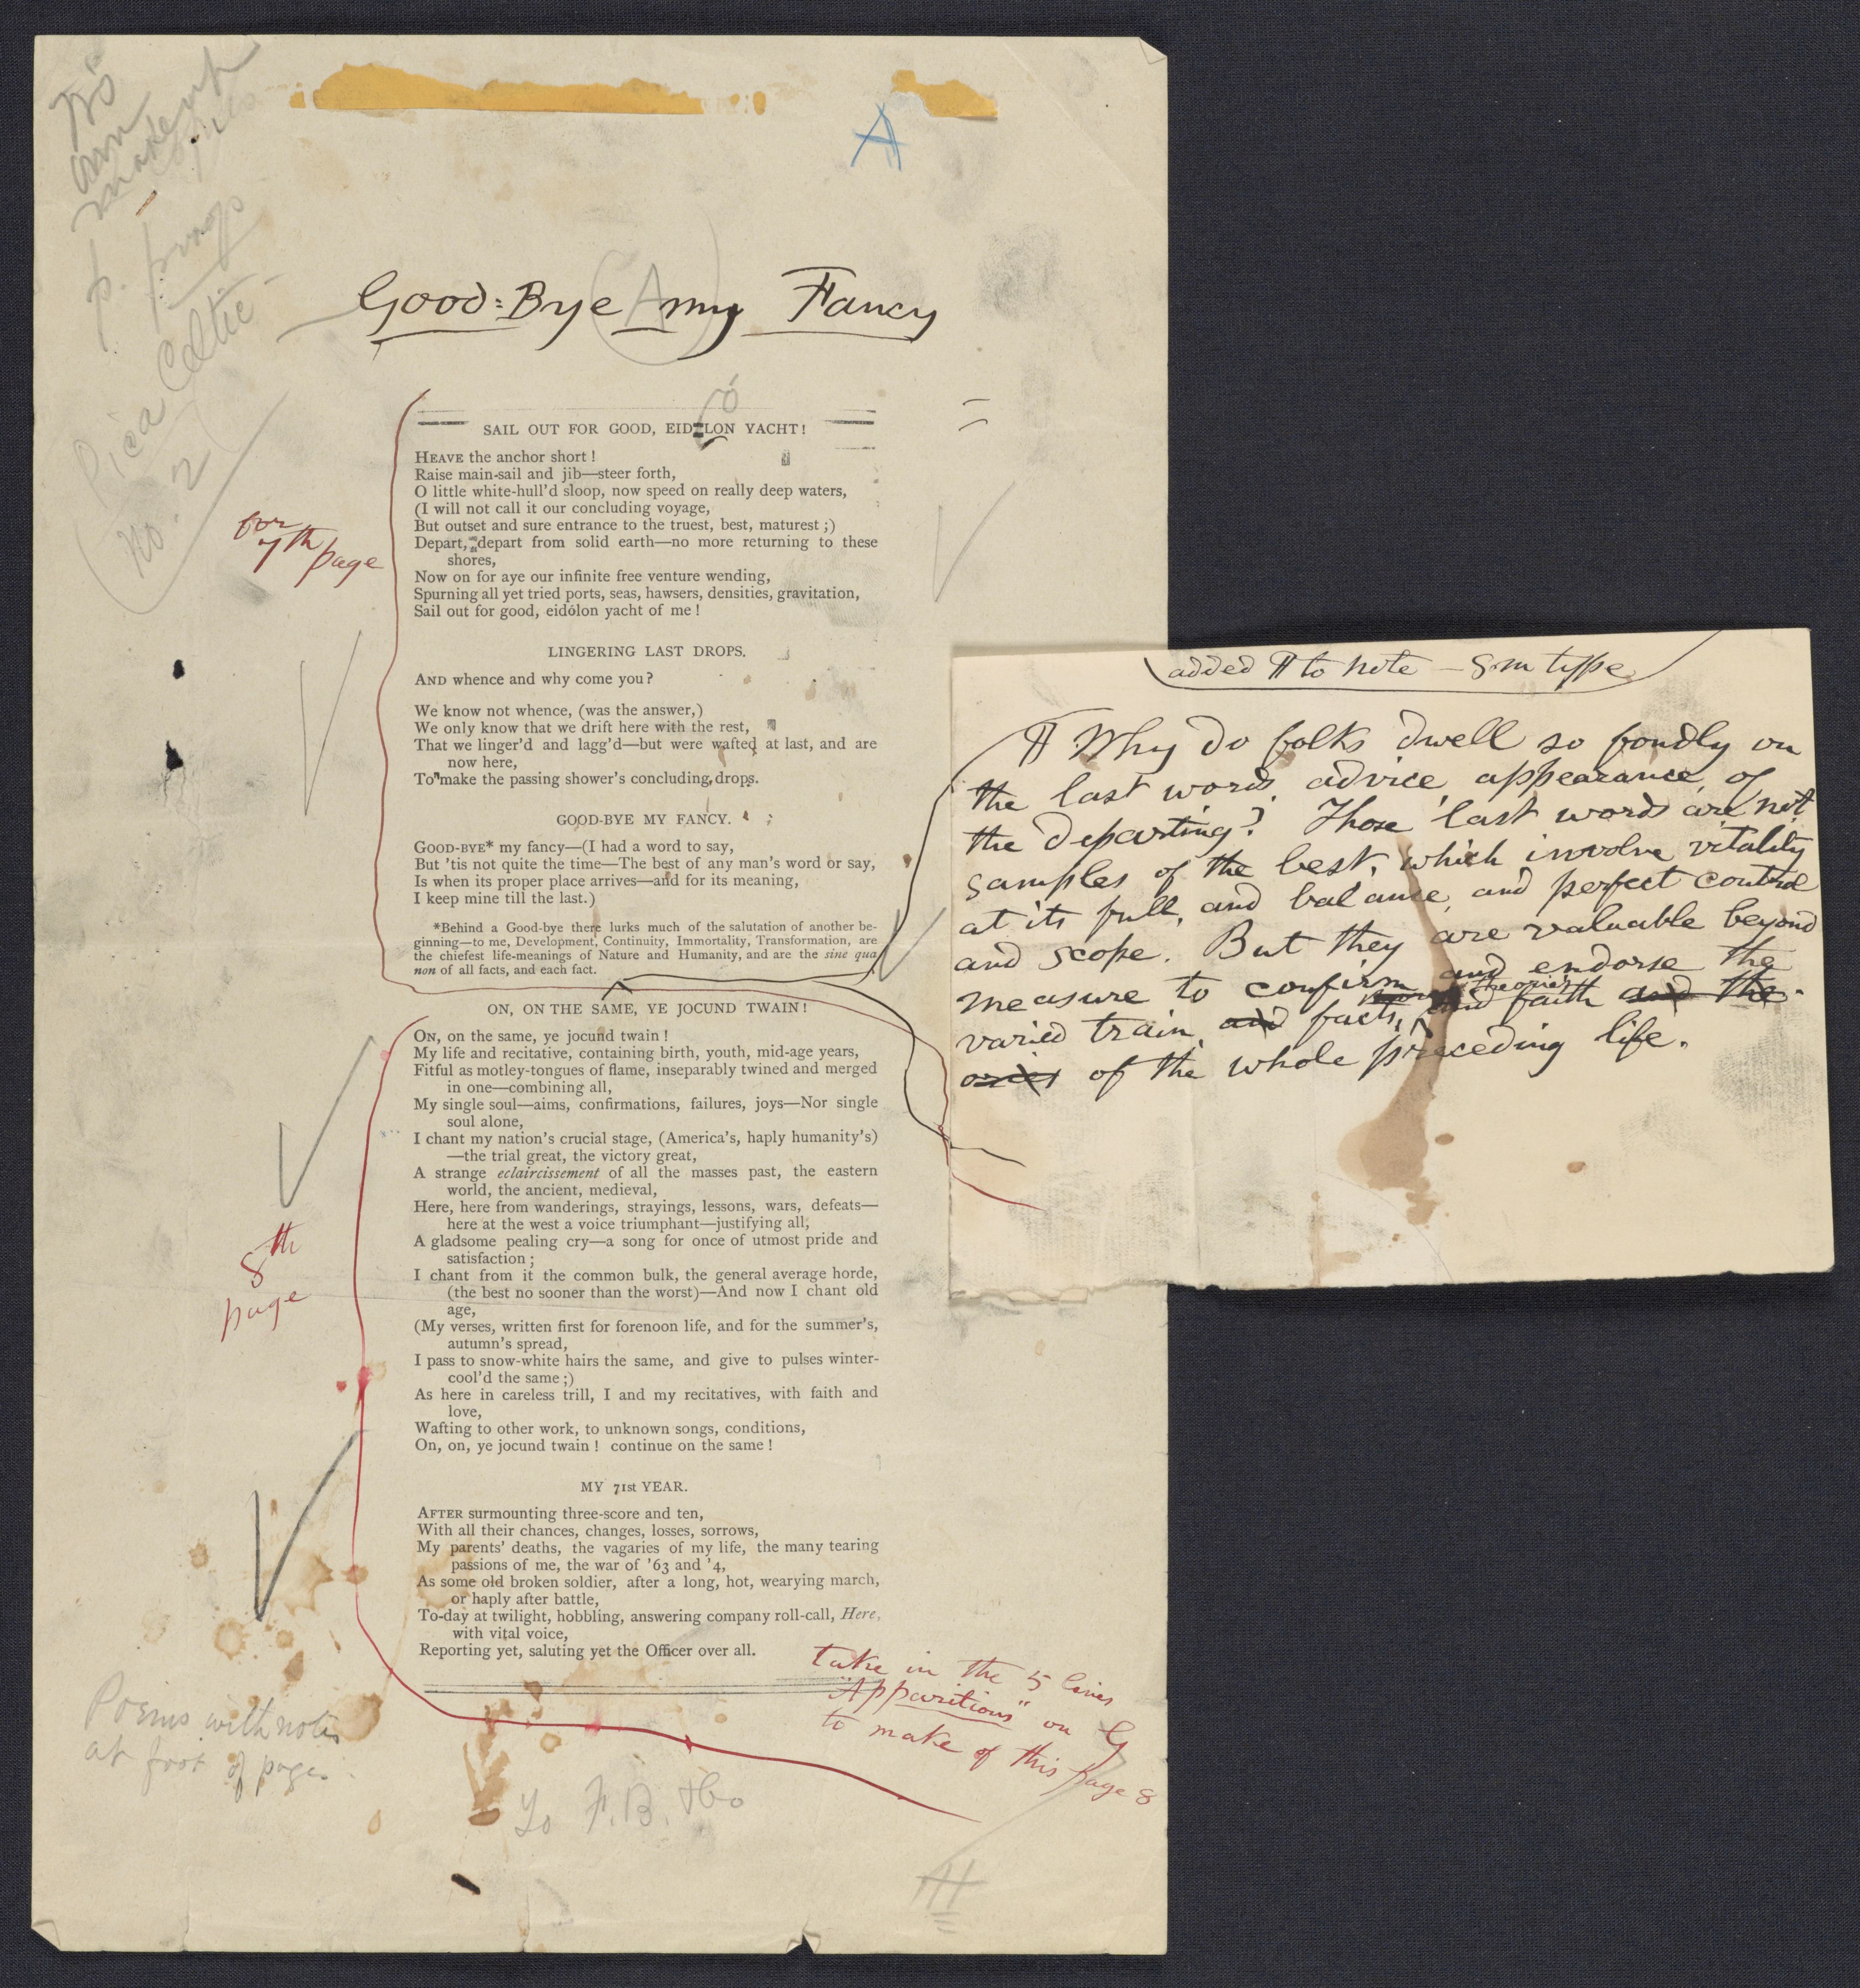 A
(A)
Good-Bye my Fancy
ó
SAIL OUT FOR GOOD, EIDLON YACHT!
HEAVE the anchor short!
Raise main-sail and jib—steer forth,
O little white-hull'd sloop, now speed on really deep waters,
(I will not call it our concluding voyage,
But outset and sure entrance to the truest, best, maturest;)
Depart, depart from solid earth—no more returning to these
shores,
Now on for aye our infinite free venture wending,
Spurning all yet tried ports, seas, hawsers, densities, gravitation,
Sail out for good, eidólon yacht of me!
Pica Celtic
No. 2
for
7th page
LINGERING LAST DROPS.
AND whence and why come you?
We know not whence, (was the answer,)
We only know that we drift here with the rest,
That we linger'd and lagg'd—but were wafted at last, and are
now here,
To make the passing shower's concluding drops.
GOOD-BYE MY FANCY.
GOOD-BYE* my fancy—(I had a word to say,
But 'tis not quite the time—The best of any man's word or say,
Is when its proper place arrives—and for its meaning,
I keep mine till the last.)
*Behind a Good-bye there lurks much of the salutation of another be-
ginning—to me, Development, Continuity, Immortality, Transformation, are
the chiefest life-meanings of Nature and Humanity, and are the sine qua
non of all facts, and each fact.
added ¶ to note — s-m type
¶ Why do folks dwell so fondly on
the last words, advice, appearance, of
the departing? Those last words are not
samples of the best, which involve vitality
at its full, and balance, and perfect control
and scope. But they are valuable beyond
measure to confirm and endorse the
varied train, and facts, theories and faith and the
ories of the whole preceding life.
ON, ON THE SAME, YE JOCUND TWAIN!
ON, on the same, ye jocund twain!
My life and recitative, containing birth, youth, mid-age years,
Fitful as motley-tongues of flame, inseparably twined and merged
in one—combining all,
My single soul—aims, confirmations, failures, joys—Nor single
soul alone,
I chant my nation's crucial stage, (America's, haply humanity's)
—the trial great, the victory great,
A strange eclaircissement of all the masses past, the eastern
world, the ancient, medieval,
Here, here from wanderings, strayings, lessons, wars, defeats—
here at the west a voice triumphant—justifying all,
A gladsome pealing cry—a song for once of utmost pride and
satisfaction;
I chant from it the common bulk, the general average horde,
(the best no sooner than the worst)—And now I chant old
age,
(My verses, written first for forenoon life, and for the summer's,
autumn's spread,
I pass to snow-white hairs the same, and give to pulses winter-
cool'd the same;)
As here in careless trill, I and my recitatives, with faith and
love,
Wafting to other work, to unknown songs, conditions,
On, on, ye jocund twain! continue on the same!
8th
page
MY 71st YEAR.
AFTER surmounting three-score and ten,
With all their chances, changes, losses, sorrows,
My parents' deaths, the vagaries of my life, the many tearing
passions of me, the war of '63 and '4,
As some old broken soldier, after a long, hot, wearying march,
or haply after battle,
To-day at twilight, hobbling, answering company roll-call, Here,
with vital voice,
Reporting yet, saluting yet the Officer over all.
take in the 5 lines
"Apparitions" on G
to make of this page 8
Poems with notes
at foot of pages.
To F. B. & Co